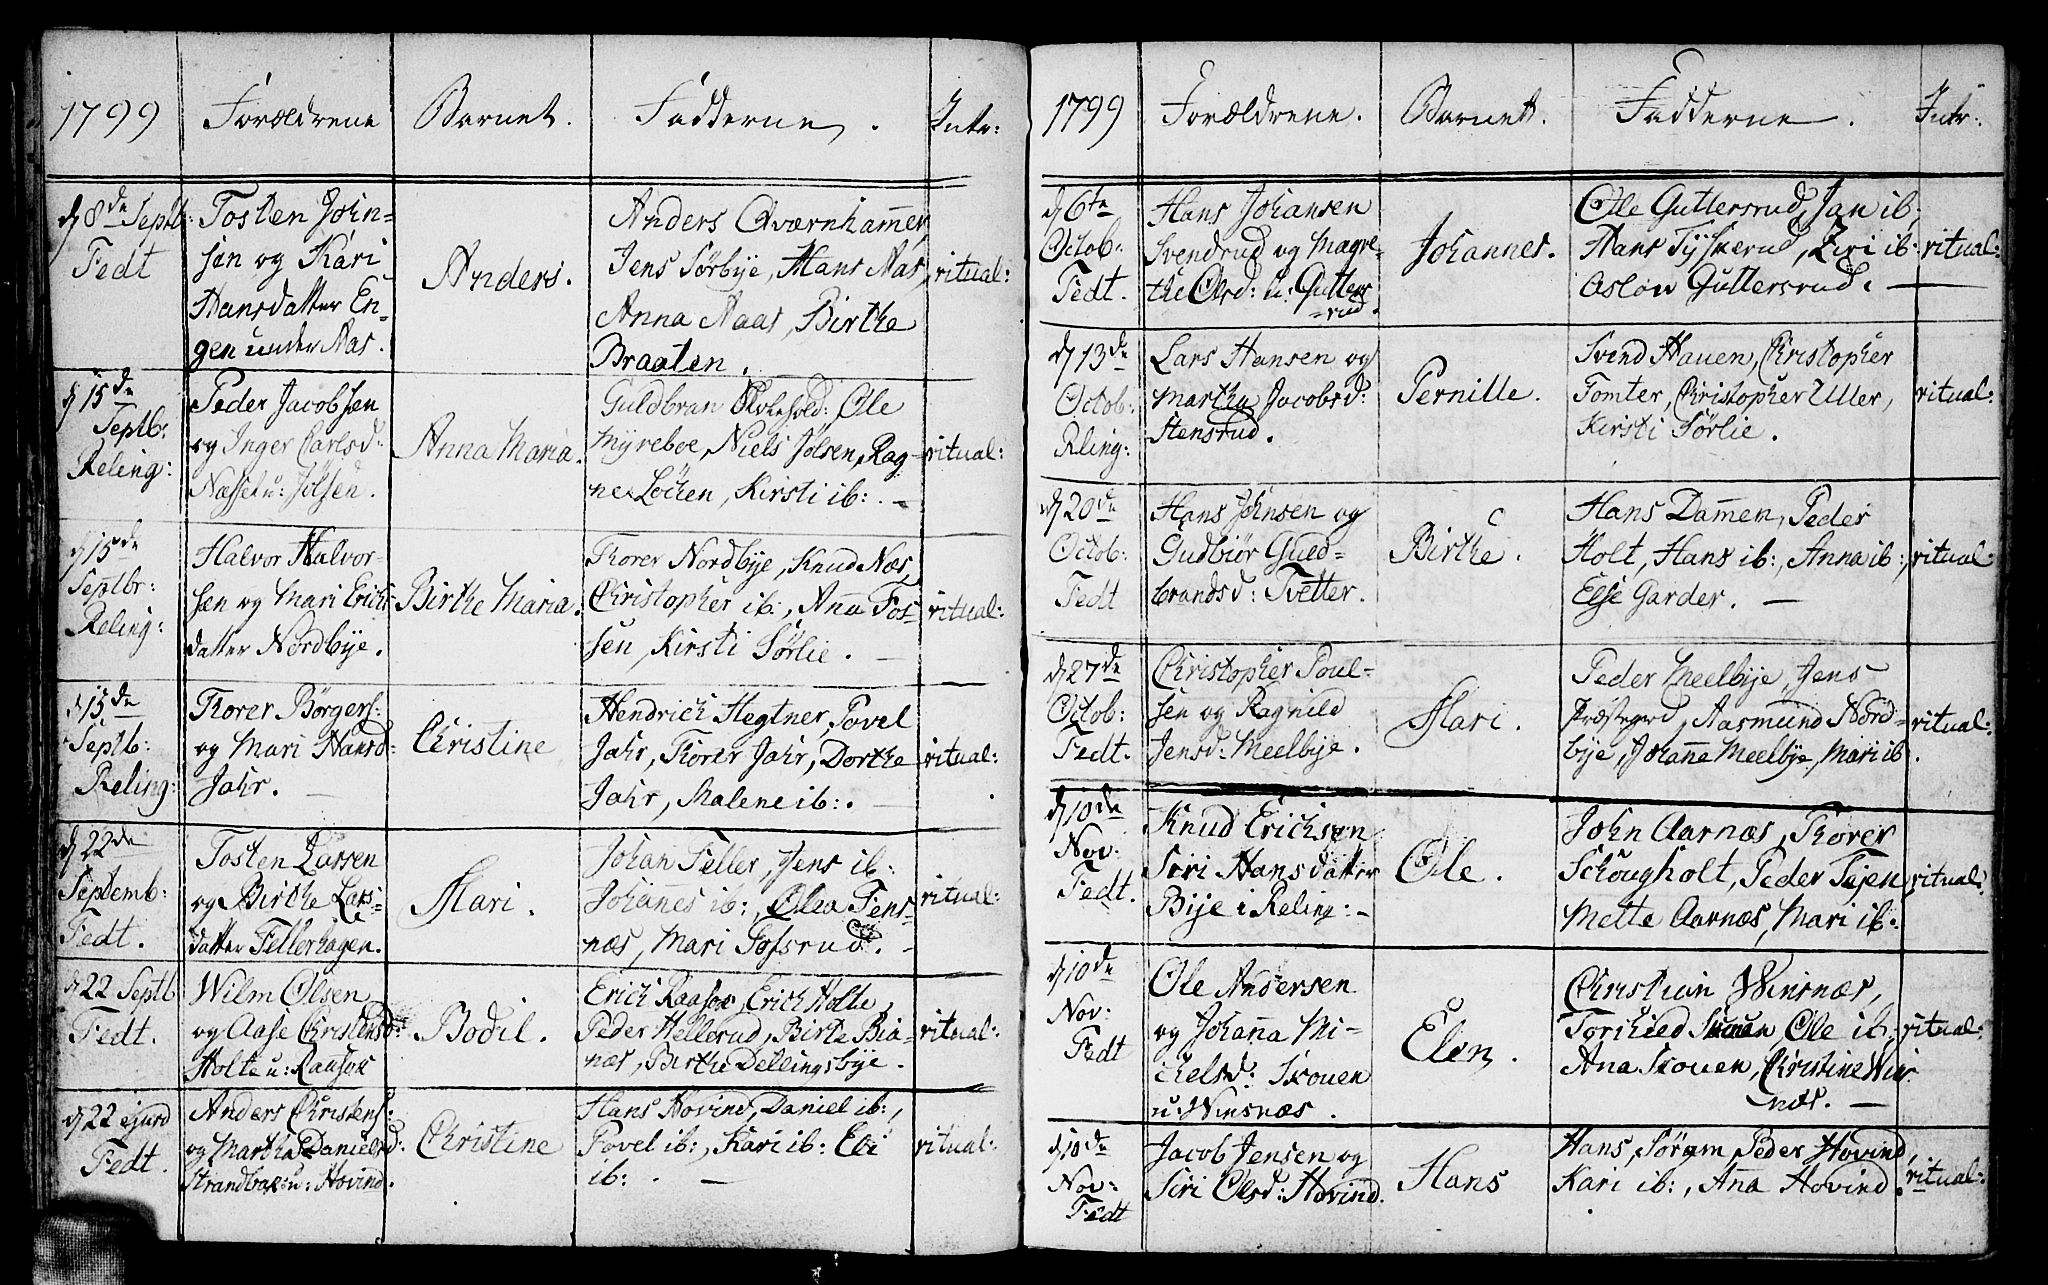 1799 Forældrene Barnet. Fadderne. Intr:
d 8de Septb: Fedt
Tosten John=
sen og Kari
Hansdatter En=
gen under Nas.
Anders.
Anders Qværnhammer,
Jens Sørbye, Hans Nas,
Anna Naas, Birthe
Braaten.
ritual:
d 15de
Septb:
Reling:
Peder Jacobsen
og Inger Carlsd:
Næsset u: Jølsen.
Anna Maria.
Guldbran Ole
Myreboe, Niels Jølsen, Rag=
ne Løchen, Kirsti ib: . —
ritual:
d 15de
Septbr:
Reling:
Halvor Halvor=
sen og Mari Erichs
datter Nordbye.
Birthe Maria.
Thorer Nordbye, Knud Næs,
Christopher ib:, Ana Fos=
sen, Kirsti Sørlie. —
ritual:
d 15de
Septb:
Reling:
Thorer Børgers:
og Mari Hansd:
Jahr. —
Christine
Hendrich Hegtner, Povel
Jahr, Thorer Jahr, Dorthe
Jahr, Malene ib: . —
ritual:
d 22de
Septemb:
Fedt.
Tosten Larsen
og Birthe Lars=
datter Fellerhagen.
Mari.
Johan Feller, Jens ib:
Johannes ib:, Olea Tens=
næs, Mari Fossrud. —
ritual:
d 22 Septb
Fedt.
Wilm Olsen
og Aase Christensd:
Holte u: Raasox
Bodil.
Erich Raasox, Erich Holte,
Peder Hellerud, Birte Bia=
næs, Birthe Dellingsbye.
ritual:
d 22 ejusd
Fedt.
Anders Christens:
og Martha Danielsd:
Strandbak u: Hovind.
Christine
Hans Hovind, Daniel ib:,
Povel ib:, Kari ib: Eli
ib: . —
ritual:
1799 Forældrene. Barnet. Fadderne. Intr:
d 6te
Octob:
Fedt.
Hans Johansen
Svendrud og Magre=
the Olsd: u: Gutters
=rud.
Johannes.
Ole Guttersrud, Jan ib,
Hans Tyskerud, Ziri ib:
Aslow Guttersrud. —
ritual:
d 13de
Octob:
Rling:
Lars Hansen og
Martha Jacobsd:
Stensrud.
Pernille.
Svend Hauen, Christopher
Tomter, Christopher Uller,
Kirsti Sørlie.
ritual:
d 20de
Octob:
Fedt
Hans Johnsen og
Gudbiør Guld=
brandsd: Tvetter.
Birthe.
Hans Dammen, Peder
Holt, Hans ib:, Anna ib:,
Else Garder. —
ritual
d 27de
Octob:
Fedt.
Christopher Poul=
sen og Ragnild
Jensd: Meelbye.
Mari.
Peder Meelbye, Jens
Præstegerd, Aasmund Nord=
bye, Johanne Meelbye, Mari ib.
ritual:
d 10de
Nov:
Fedt.
Knud Erichsen
Siri Hansdatter
Bye i Reling: —
Ole.
John Aarnæs, Thorer
Schougholt, Peder Tejen
Mette Aarnæs, Mari ib:
ritual.
d 10de
Nov:
Fedt
Ole Andersen
og Johanna Mi=
chelsd: Skouen
u: Winsnæs.
Elen.
Christian Winsnæs,
Torchied Skouen, Ole ib:,
Ana Skouen, Christine Win
næs. —
ritual:
d 10de
Nov:
Fedt
Jacob Jensen og
Siri Olsd: Hovind.
Hans
Hans, Sørum, Peder Hovind,
Kari ib:, Ana Hovind.
ritual: